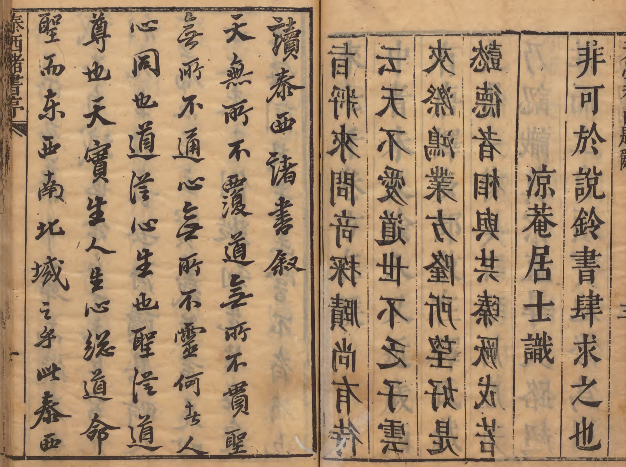 非可於說鈴書肆求之也
凉菴居士識
懿德者相與共臻厥成若
夾漈鴻業方隆所望好是
云天不愛道世不乏子雲
者將來問奇探賾尚有待
讀泰西諸書敘
天無所不覆道無所不貫聖
無所不通心無所不靈何者人
心同也道從心生也聖從道
尊也天實生人生心總道命
聖而東西南北域之乎此泰西